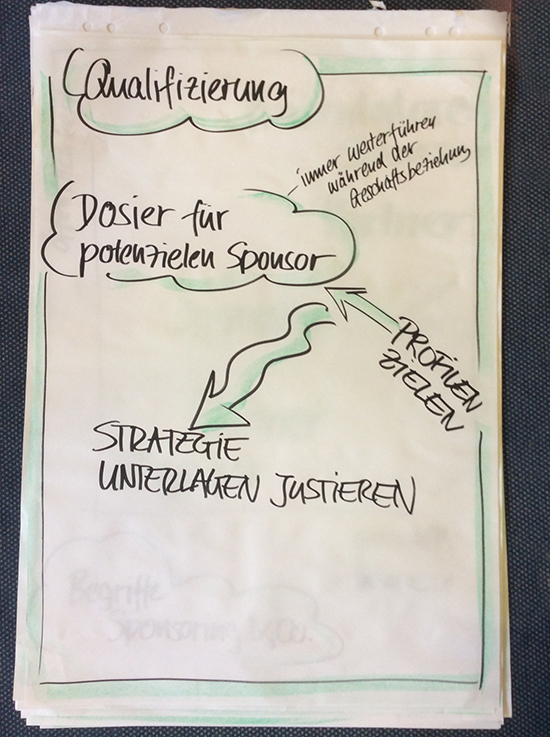 Qualifizierung
immer weiterführen
während der
Geschäftsbeziehung
Dosier für
potenzielen Sponsor
PROFILEN
ZIELEN
STRATEGIE
UNTERLAGEN JUSTIEREN
Begriffe
Sponsoring & Co.